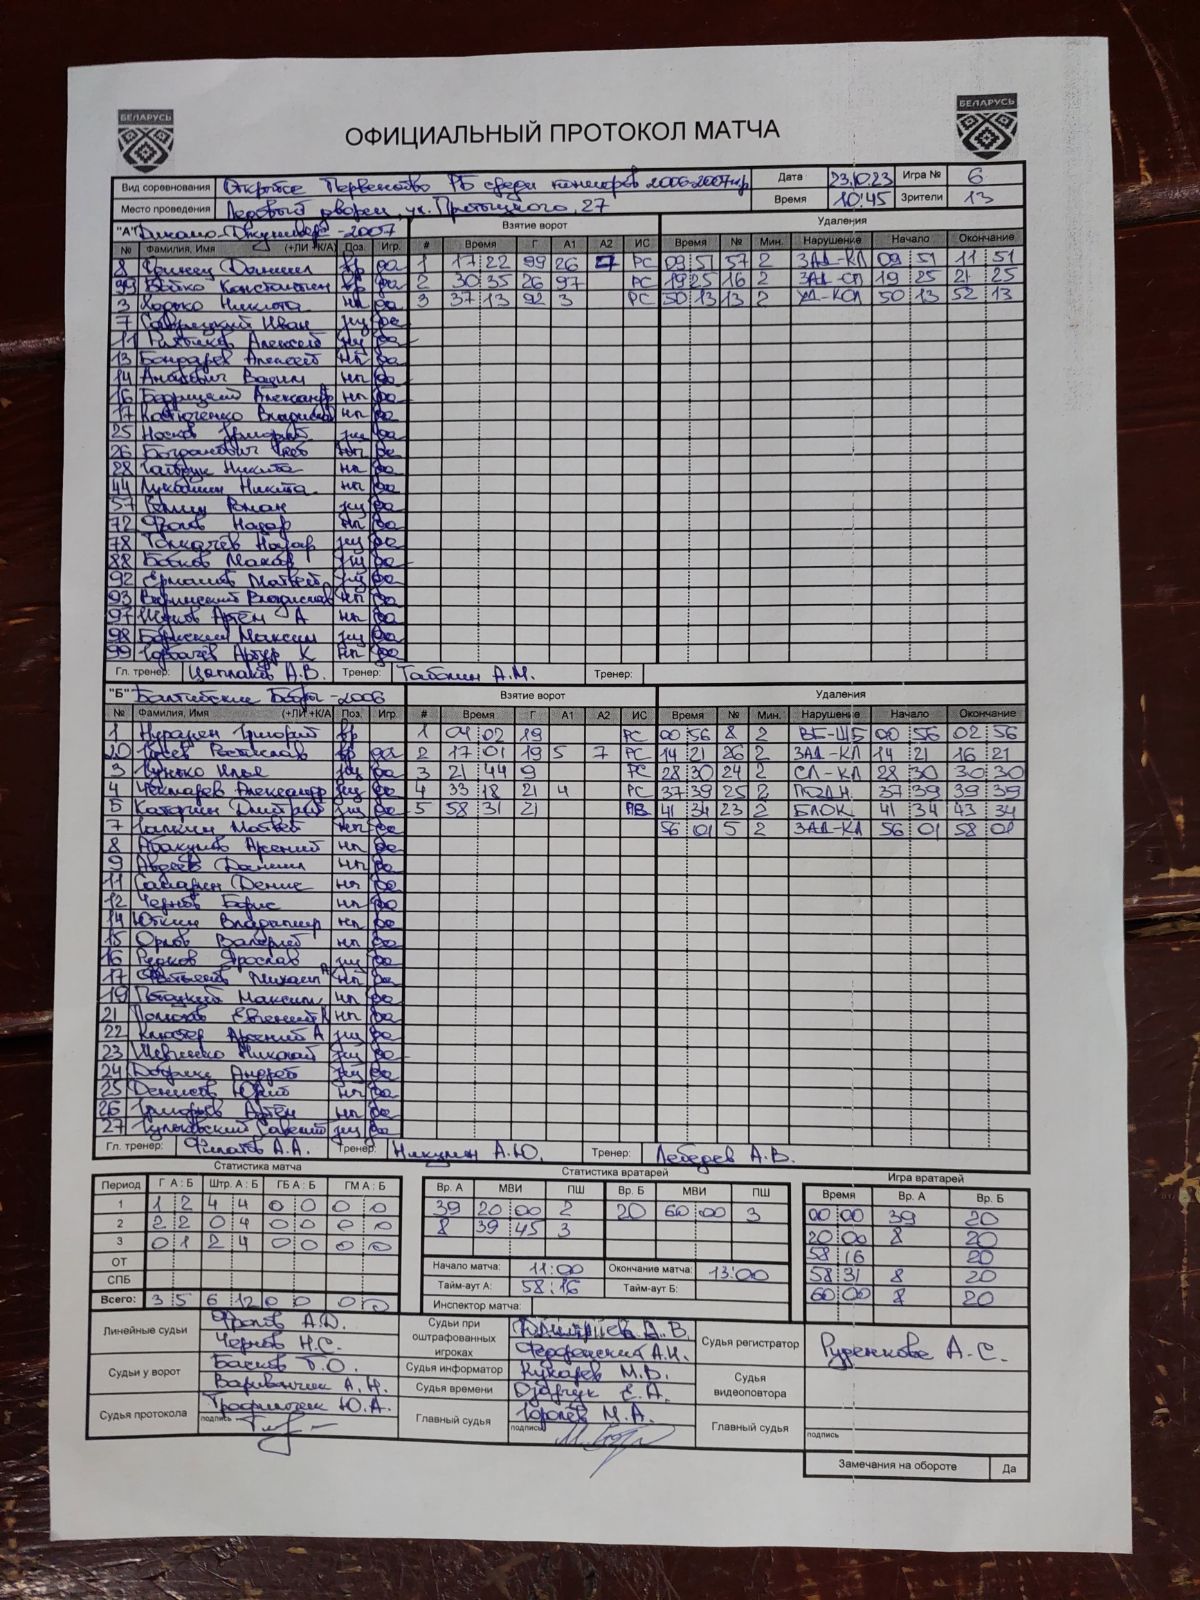 БЕЛАРУСЬ
БЕЛАРУСЬ
ОФИЦИАЛЬНЫЙ ПРОТОКОЛ МАТЧА
Вид соревнования Открытое Первенство РБ среди юниоров 2006-2007 г.р. Дата 23.10.23 Игра № 6
Место проведения Ледовый дворец, ул. Притыцкого, 27 Время 10:45 Зрители 13
"А" Динамо-Джуниверс-2007 Взятие ворот Удаления
№ Фамилия, Имя (+ЛИ +К/А) Поз. Игр. # Время Г А1 А2 ИС Время № Мин. Нарушение Начало Окончание
8 Даниил вр да 1 17 22 99 26 РС 09 51 57 2 ЗАД-КЛ 09 51 11 51
39 Бойко Константин вр да 2 30 35 26 97 РС 19 25 16 2 19 25 21 25
3 Ходько Никита нп да 3 37 13 92 3 РС 50 13 13 2 50 13 52 13
7 Савицкий Иван защ да
11 Алексей защ да
13 Бондарев Алексей нп да
14 Вадим нп да
16 Александр нп да
17 Костюченко Владислав нп да
25 Носков Григорий защ да
26 Богданович Глеб нп да
28 Гайдук Никита нп да
44 Лукашин Никита нп да
57 Роман защ да
72 Фролов Назар нп да
78 Толкачёв Назар защ да
88 Бобков Макар защ да
92 Ермаков Матвей защ да
93 Владислав нп да
97 Артём А нп да
98 Максим защ да
99 Горбачёв Артур К нп да
Гл. тренер: Цаплаков А.В. Тренер: Табакин А.М. Тренер:
"Б" Балтийские Бобры-2006 Взятие ворот Удаления
№ Фамилия, Имя (+ЛИ +К/А) Поз. Игр. # Время Г А1 А2 ИС Время № Мин. Нарушение Начало Окончание
1 Григорий вр 1 04 02 19 РС 00 56 8 2 00 56 02 56
20 Ростислав вр да 2 17 01 19 5 7 РС 14 21 26 2 ЗАД-КЛ 14 21 16 21
3 Кунько Илья защ да 3 21 44 9 РС 28 30 24 2 28 30 30 30
4 Чекмарев Александр защ да 4 33 18 21 4 РС 37 39 25 2 ПОДН. 37 39 39 39
5 Каторгин Дмитрий защ да 5 58 31 21 ПВ 41 34 23 2 БЛОК. 41 34 43 34
7 Галкин Матвей нп да 56 01 5 2 ЗАД-КЛ 56 01 58 01
8 Абакумов Арсений нп да
9 Авдеев Даниил нп да
11 Самарин Денис нп да
12 Чернов Борис нп да
14 Юткин Владимир нп да
15 Орлов Валерий нп да
16 Рудков Ярослав защ да
17 Михаил А нп да
19 Потоцкий Максим нп да
21 Евгений К нп да
22 Клюстер Арсений А защ да
23 Шевченко Николай защ да
24 Андрей защ да
25 Денисов Юрий нп да
26 Григорьев Артём нп да
27 Савелий защ да
Гл. тренер: Филатов А.А. Тренер: Никулин А.Ю. Тренер: Лебедев А.В.
Статистика матча Статистика вратарей Игра вратарей
Период Г А : Б Штр. А : Б ГБ А : Б ГМ А : Б Вр. А МВИ ПШ Вр. Б МВИ ПШ Время Вр. А Вр. Б
1 1 2 4 4 0 0 0 0 39 20 00 2 20 60 00 3 00 00 39 20
2 2 2 0 4 0 0 0 0 8 39 45 3 20 00 8 20
3 0 1 2 4 0 0 0 0 58 16 20
ОТ Начало матча: 11:00 Окончание матча: 13:00 58 31 8 20
СПБ Тайм-аут А: 58:16 Тайм-аут Б: 60 00 8 20
Всего: 3 5 6 12 0 0 0 0 Инспектор матча:
Линейные судьи Фролов А.Д. Судьи при оштрафованных игроках Дмитриев Д.В. Судья регистратор Руденкова А.С.
Чернов Н.С. А.И.
Судьи у ворот Басков Т.О. Судья информатор Кухарев М.В. Судья видеоповтора
Вариванчик А.И. Судья времени Е.А.
Судья протокола Трофимчик Ю.А. Главный судья М.А. Главный судья
подпись подпись подпись
Замечания на обороте Да